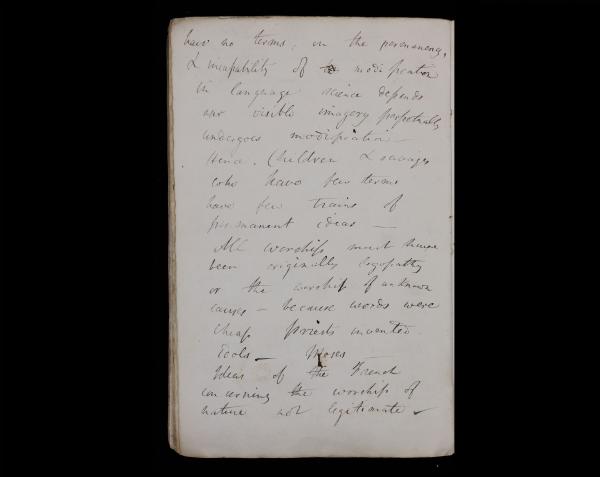 have no terms, on the permanency,
& incapability of modification
in language science depends
our visible imagery perpetually
undergoes modification —
Hence. Children & savages
who have few terms
have few trains of
permanent ideas —
All worship must have
been originally logopathy
or the worship of unknown
causes – because words were
cheap priests invented
idols — Moses
Ideas of the French
concerning the worship of
nature not legitimate –